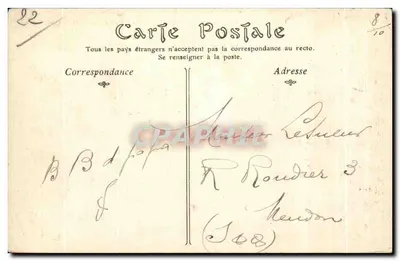 22
8/10
Carte Postale
Tous les pays étrangers n'acceptent pas la correspondance au recto.
Se renseigner à la poste.
Correspondance Adresse
Monsieur Lesueur
B B d papa
R Roudier 3
Meudon
(S & O)